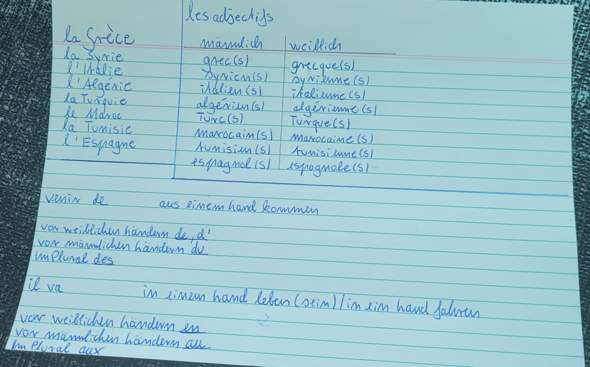 les adjectifs
la Grèce männlich weiblich
la Syrie grec(s) grecque(s)
l'Italie syrien(s) syrienne(s)
l'Algérie italien(s) italienne(s)
la Turquie algérien(s) algérienne(s)
le Maroc Turc(s) Turque(s)
la Tunisie marocain(s) marocaine(s)
l'Espagne tunisien(s) tunisienne(s)
espagnol(s) espagnole(s)
venir de aus einem hand kommen
vor weiblichen händern de, d'
vor männlichen händern du
im Plural des
il va in einem hand leben (sein)/in ein hand fahren
vor weiblichen händern en
vor männlichen händern au
im Plural aux